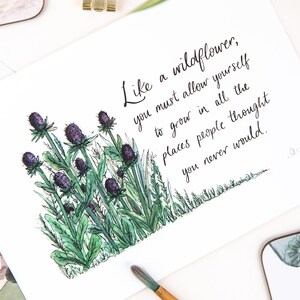 Like a wildflower;
you must allow yourself
to grow in all the
places people thought
you never would.